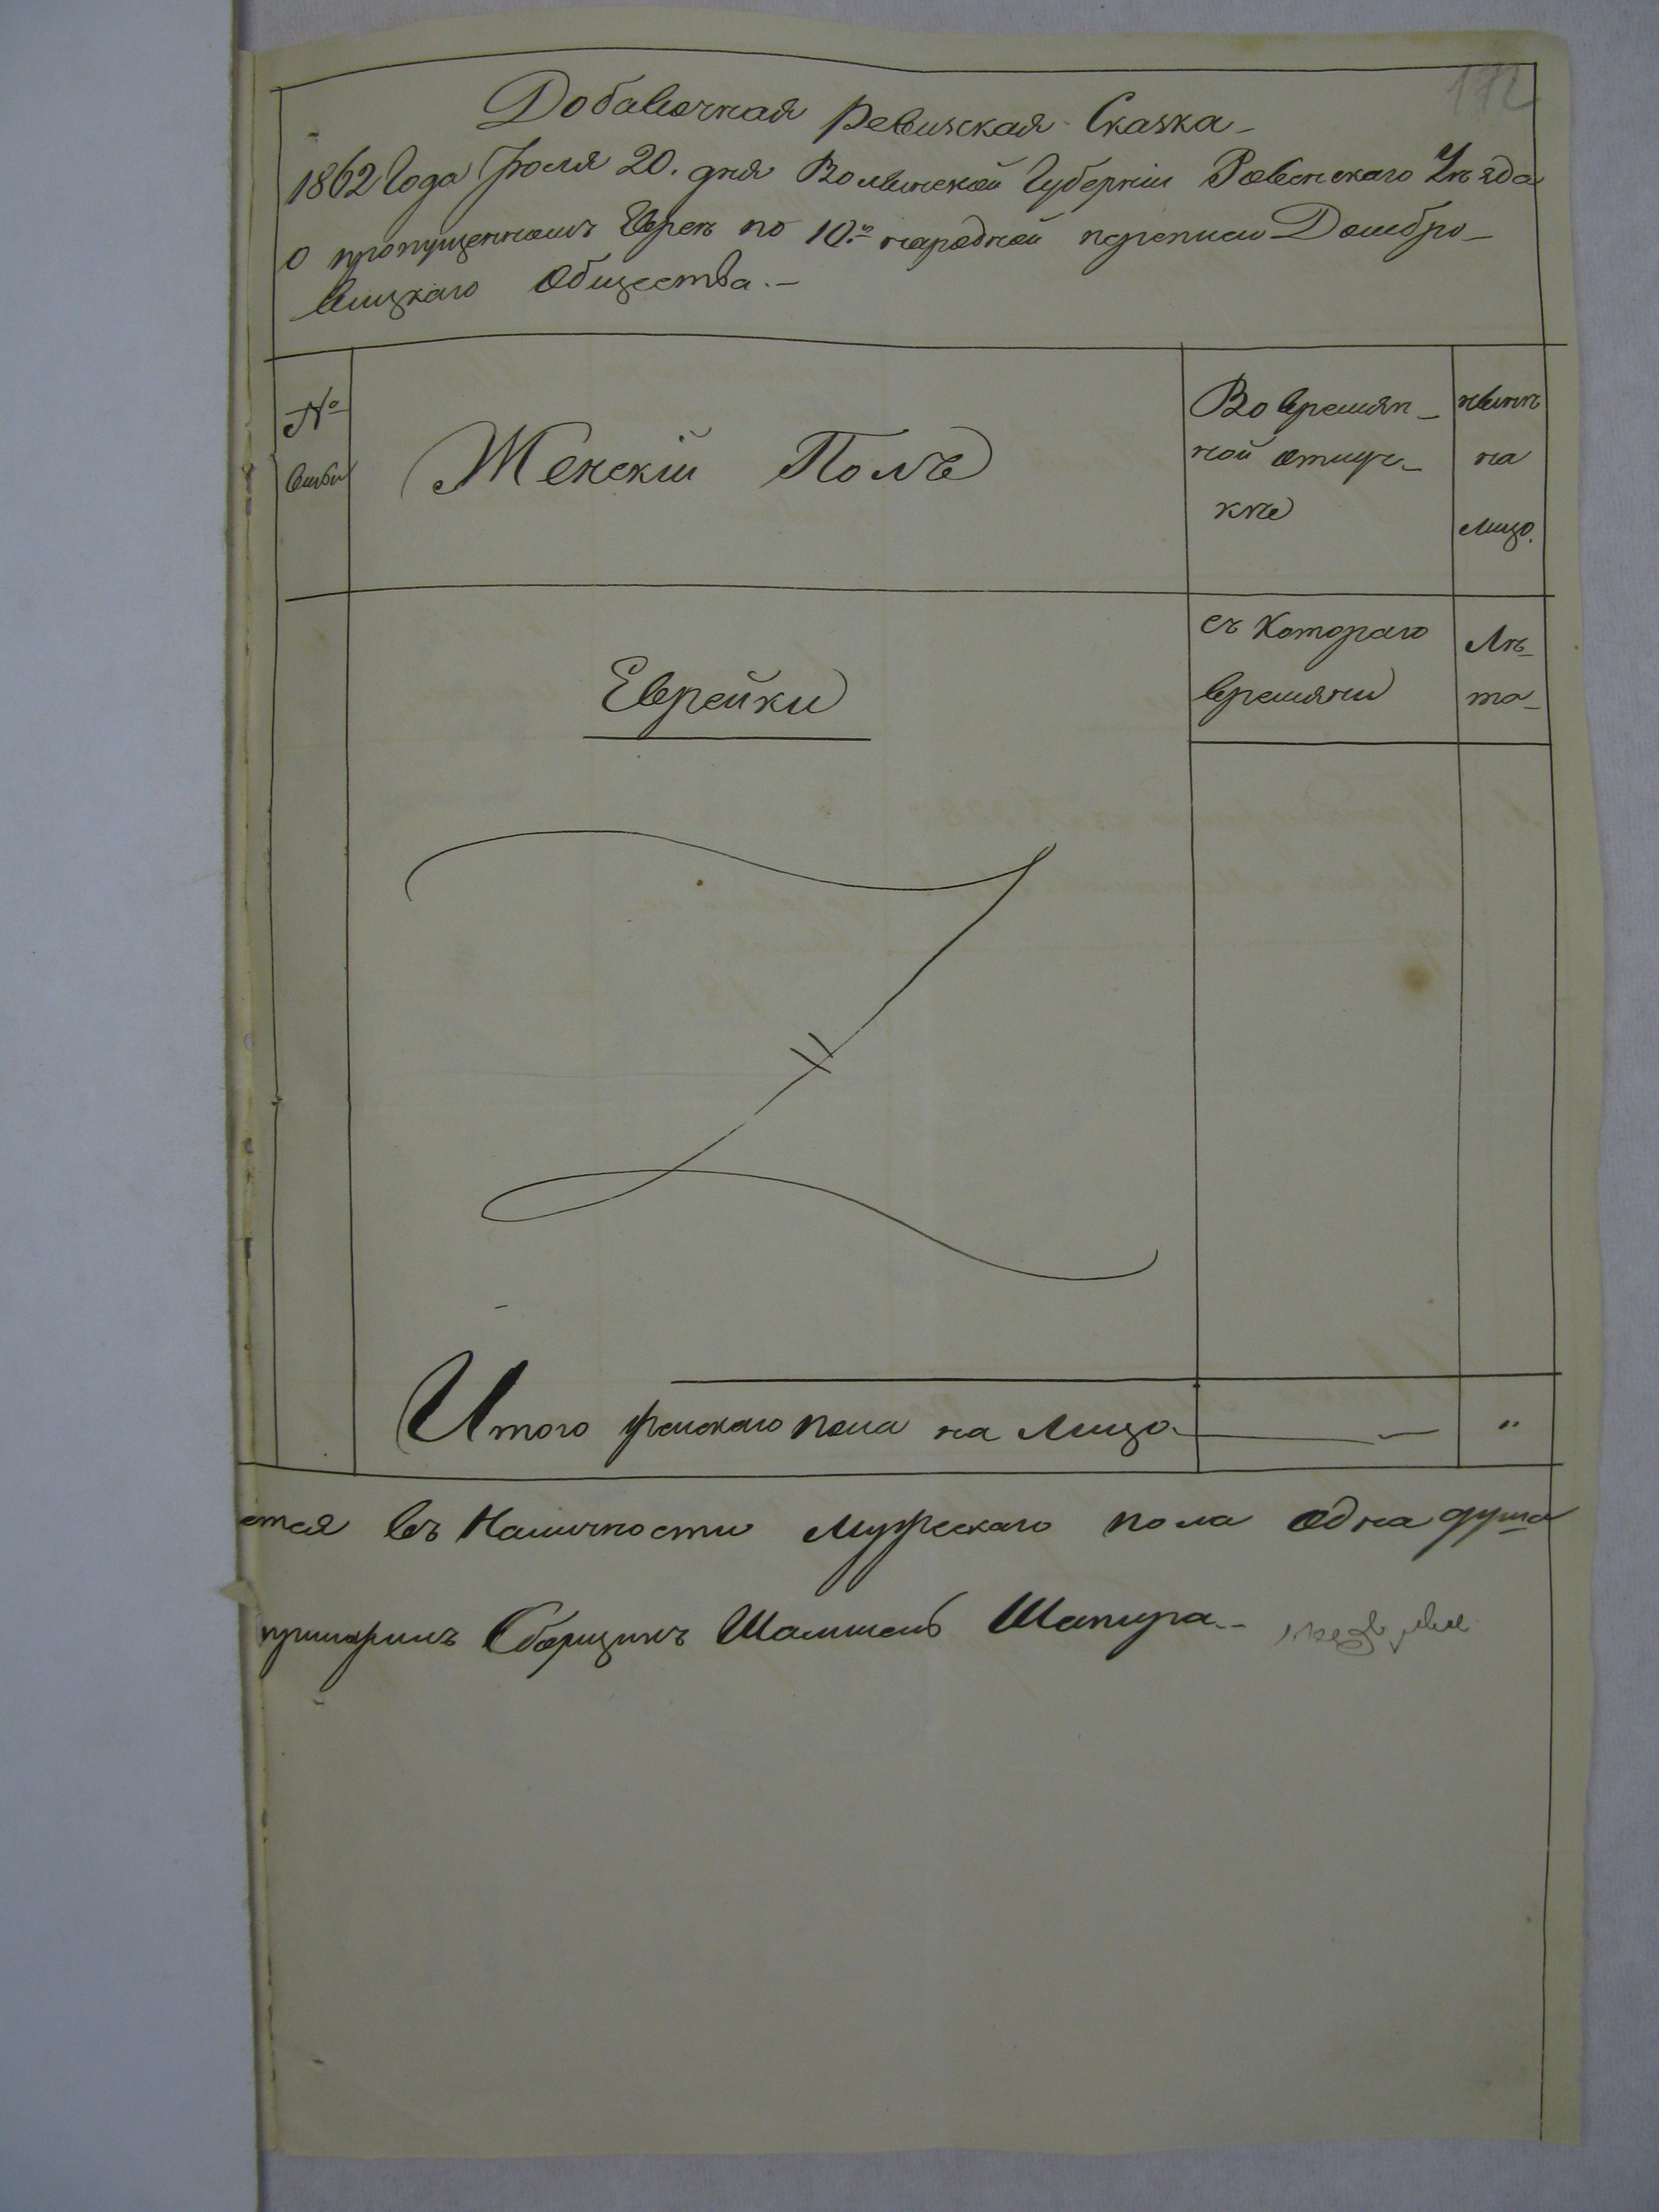 172
Добавочная Ревизская Сказка
1862 Года Июля 20. дня Волынской Губерніи Ровенскаго Уѣзда
О пропущенномъ Евреѣ по 10.й народной переписи Домбро-
вицкаго Общества.-
№
Женскій Полъ
Во времян-
ной отлуч-
кѣ
нынѣ
на
лицо.
Еврейки
съ котораго
времяни
Лѣ-
та
Итого женскаго пола на лицо - „
ется въ Наличности мужескаго пола одна душа
Сборщикъ Шапира.-